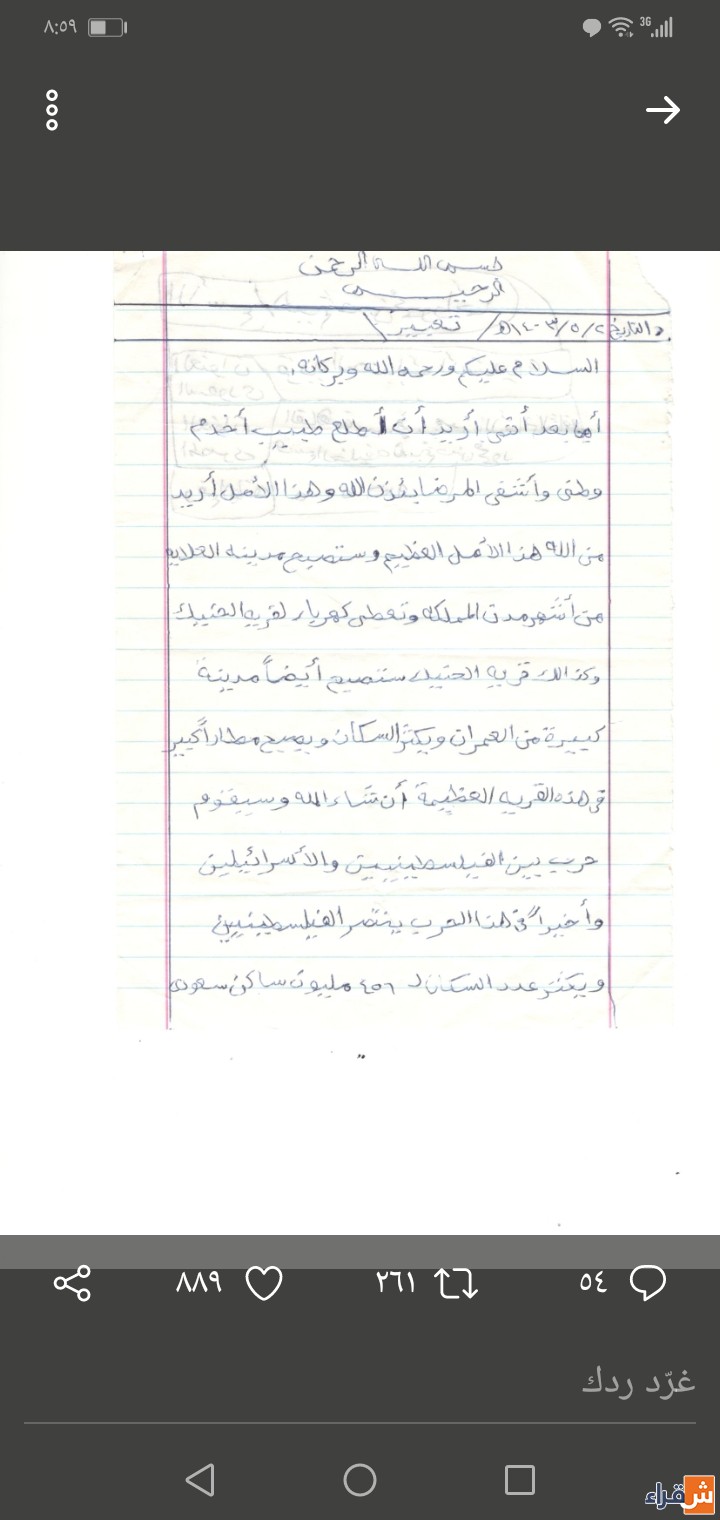 ٨:٥٩
3G
بسم الله الرحمن
الرحيم
التاريخ ١٤٠٣/٥/٢هـ / تعبير \
السلام عليكم ورحمه الله وبركاته،
أما بعد أنني أريد أن أطلع طبيب أخدم
وطني وأشفي المرضا بئذن الله وهذا الأمل أريد
من الله هذا الأمل العظيم وستصبح مدينه العلايه
من أشهر مدن المملكه وتعطي كهربا، لقريه الحتيك
وكذالك قريه الحتيك ستصبح أيضاً مدينة
كبيرة من العمران ويكثر السكان ويصبح مطاراً كبير
في هذه القريه العظيمة أن شاء الله وسيقوم
حرب بين الفيلسطينيين والأسرائيلين
وأخيراً في هذا الحرب ينتصر الفيلسطينيين
ويكثر عدد السكان لـ ٤٥٦ مليون ساكن سعودي
٨٨٩
٢٦١
٥٤
غرّد ردك
شقراء